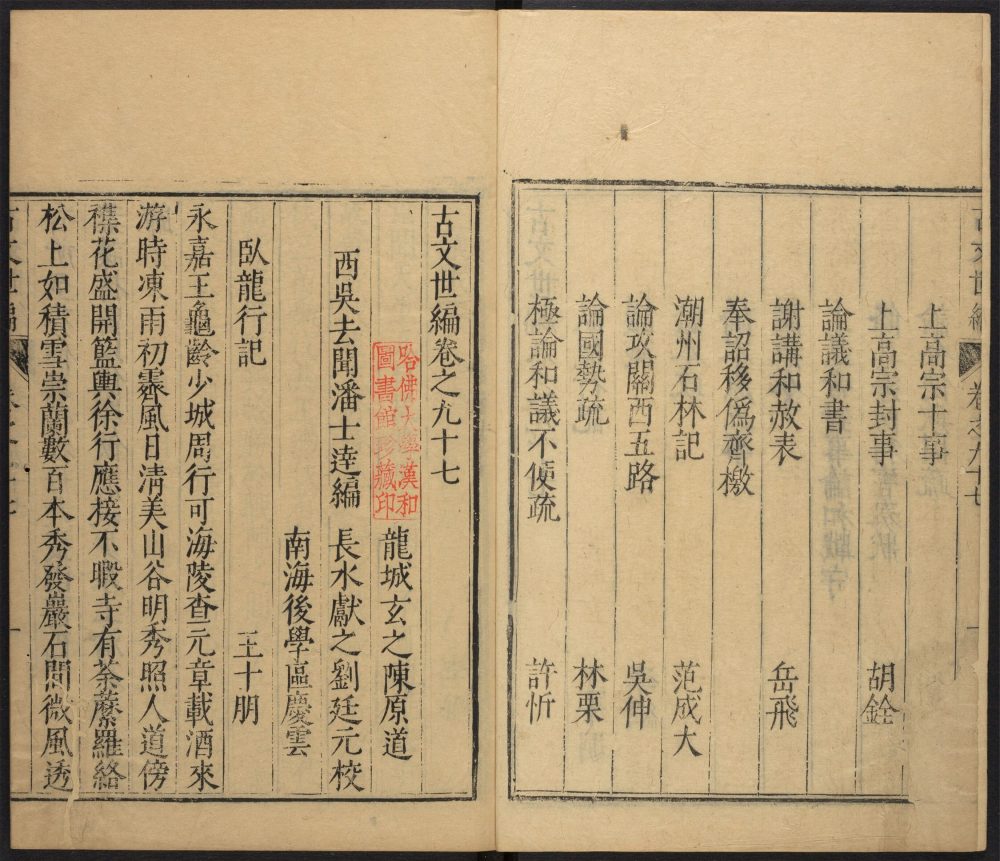 上高宗十事
上高宗封事 胡銓
論議和書
謝講和赦表 岳飛
奉詔移偽齊檄
潮州石林記 范成大
論攻關西五路 吳伸
論國勢疏 林栗
極論和議不便疏 許忻
古文世編卷之九十七
龍城玄之陳原道
西吳去聞潘士逵編 長水獻之劉廷元校
南海後學區慶雲
哈佛大學漢和
圖書館珍藏印
臥龍行記 王十朋
永嘉王龜齡少城周行可海陵查元章載酒來
游時凍雨初霽風日清美山谷明秀照人道傍
穠花盛開籃輿徐行應接不暇寺有荼䕷羅絡
松上如積雪崇蘭數百本秀發巖石間微風透